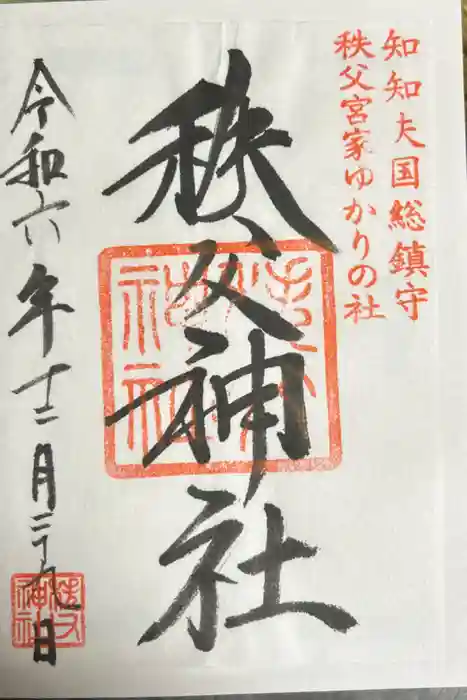 知知夫国総鎮守
秩父宮家ゆかりの社
秩父神社
令和六年十二月二十九日
秩父
神社